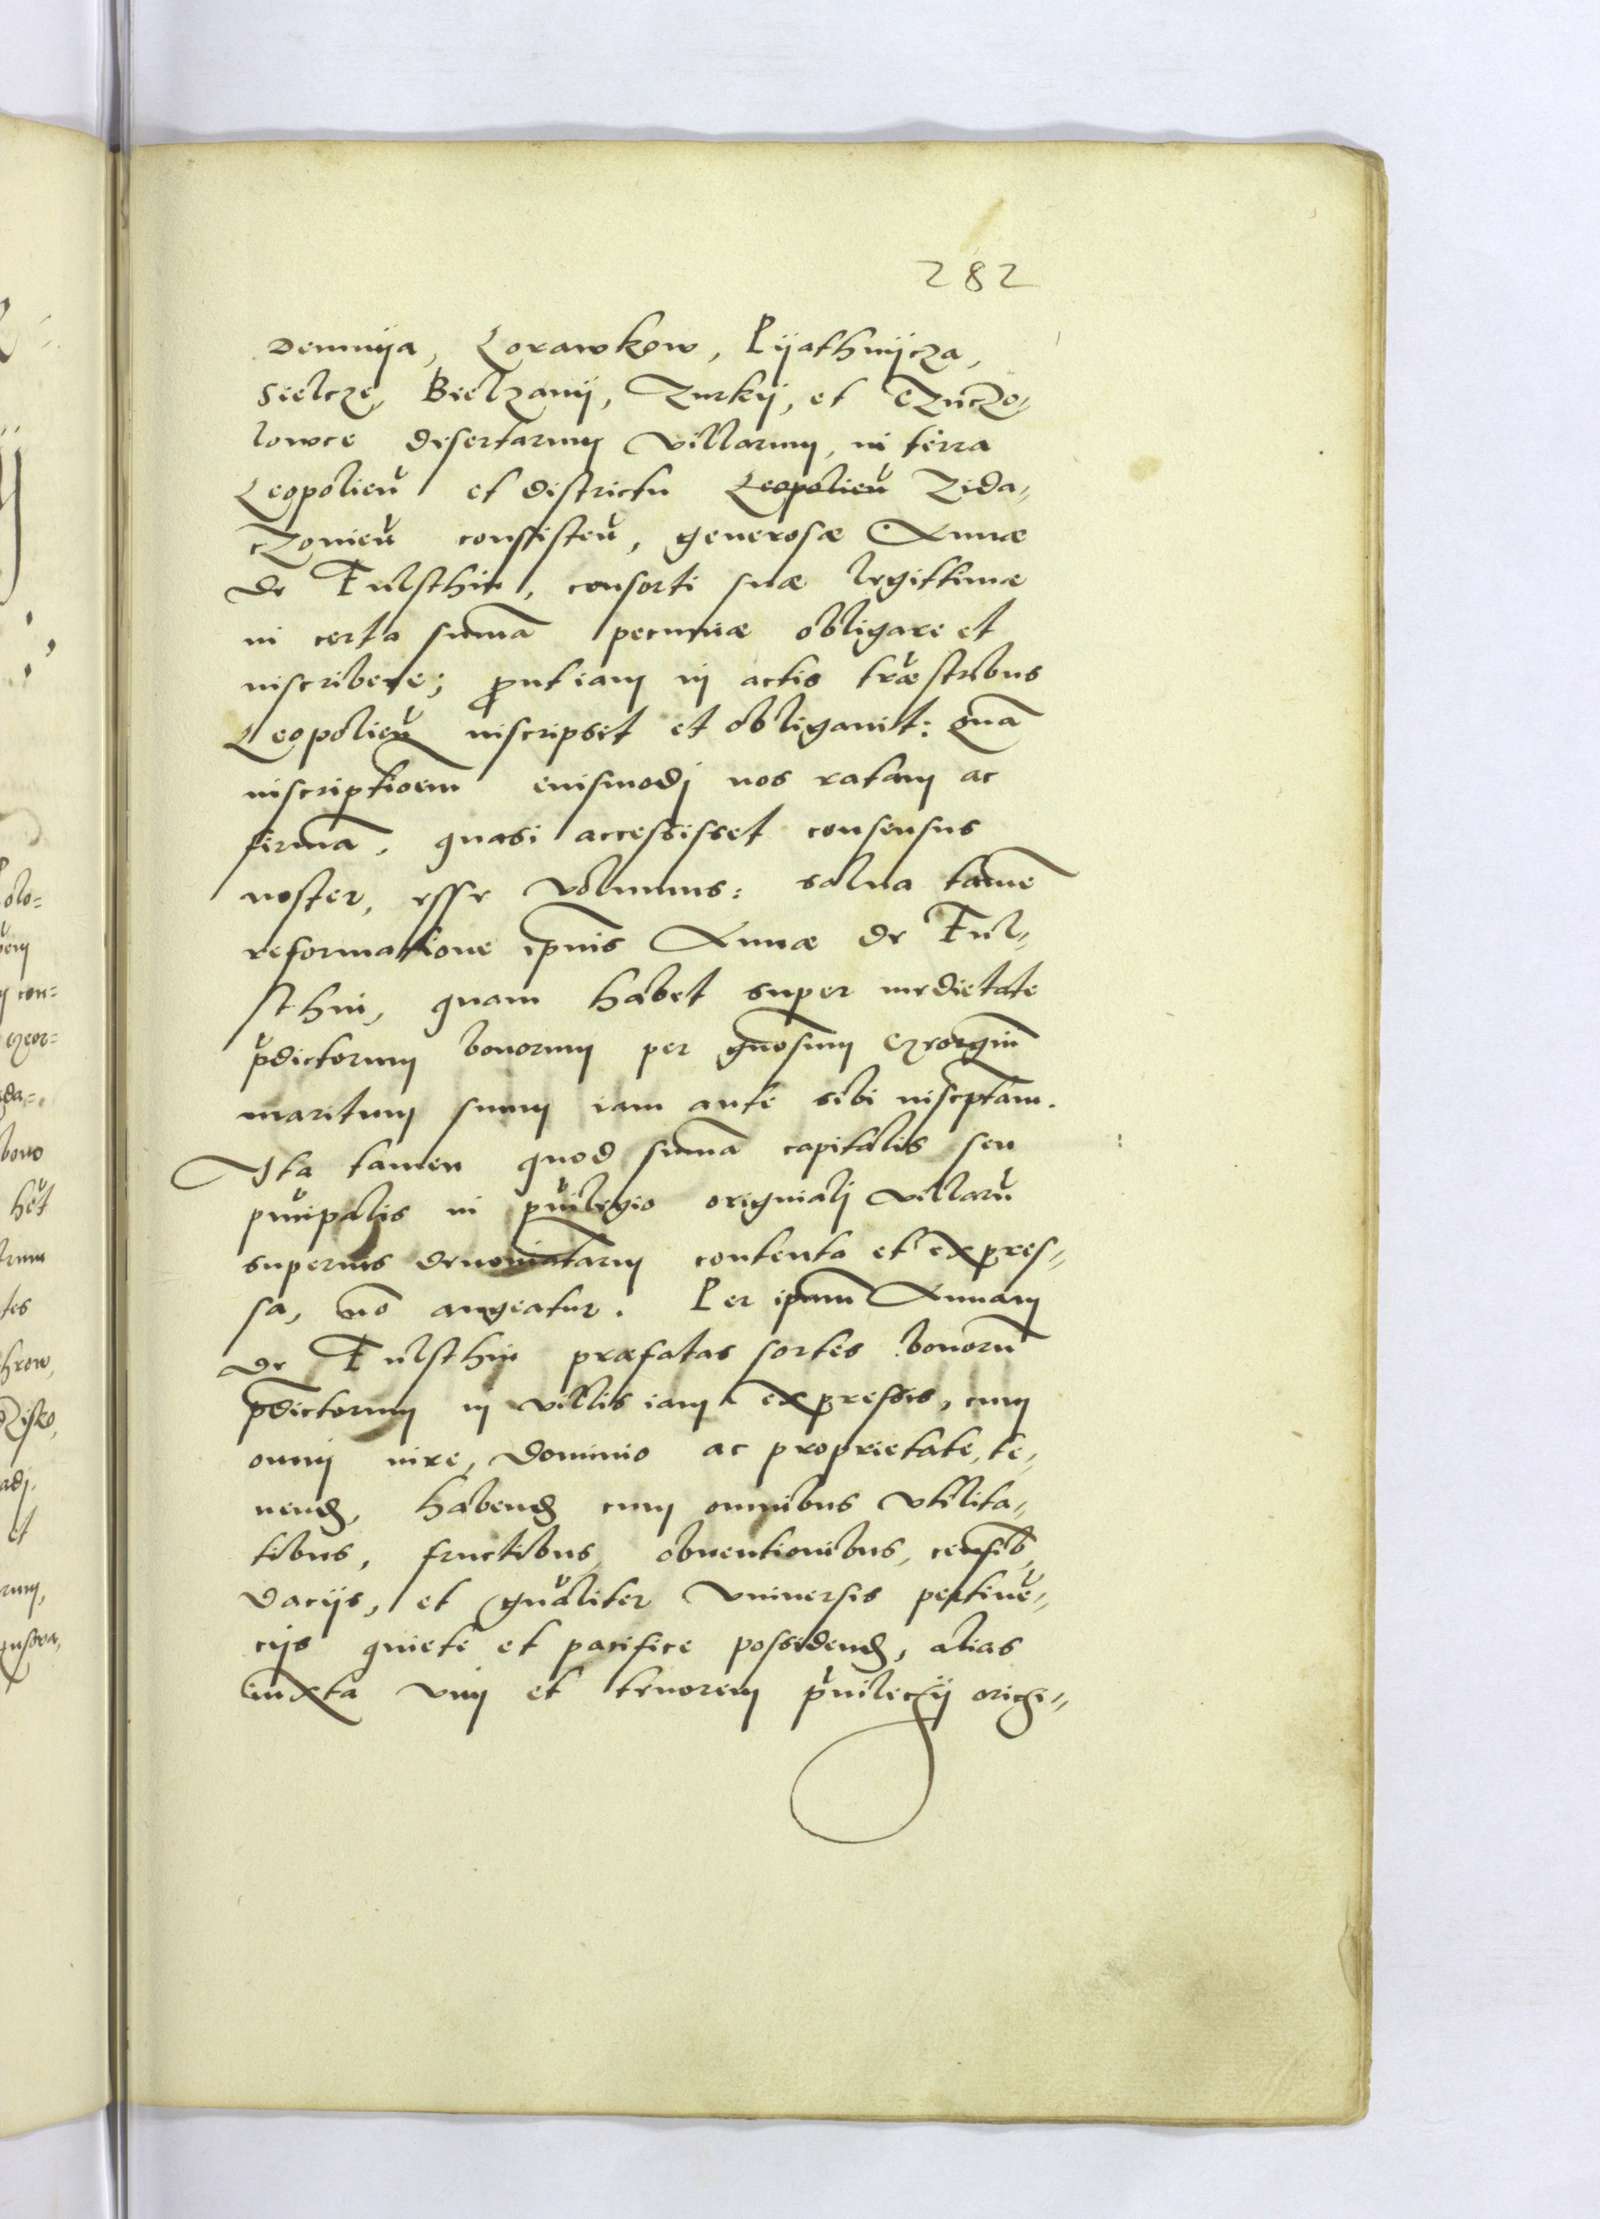 282
Demnija, Zorawkow, Pijathnijcza,
Sielcze, Bielzanij, Turkij, et Czucze=
lowce desertarum villarum, in terra
Leopolien̄ et districtu Leopolien̄ Zida=
czowien̄ consisten̄, generosæ Annæ
de Fulsthin, consorti suæ legittimæ
in certa sum̄a pecuniæ obligare et
inscribere; prout iam in actis træstribus
Leopolien̄ inscripsit et obligavit: quā
inscriptioem eiusmodj nos ratam ac
firmā, quasi accessisset consensus
noster, esse volumus: salua tamē
reformatione ipīus Annæ de Ful=
sthin, quam habet super medietate
p̄dictorum bonorum per gn̄osum Georgiū
maritum suum iam ante sibi inscptam.
Ita tamen quod sum̄a capitalis seu
pn̄cipalis in pūilegio originalj villarū
superius denominatarum contenta et expres=
sa, nō augeatur. Per ipsam Annam
de Fulsthin præfatas sortes bonorū
p̄dictorum in villis iam expressis, cum
omnj iure, dominio ac proprietate, te=
nend, habend cum omnibus vtilita=
tibus, fructibus, obuentionibus, censib,
dacijs, et gn̄aliter vniuersis pertinē=
cijs quiete et pacifice possidend, alias
iuxta vim et tenorem pūilegij origi=